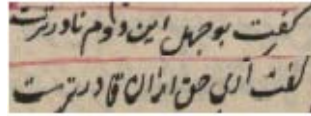 کفت بوجهل این دوم نادرترست
کفت آری حق ازان قادرترست